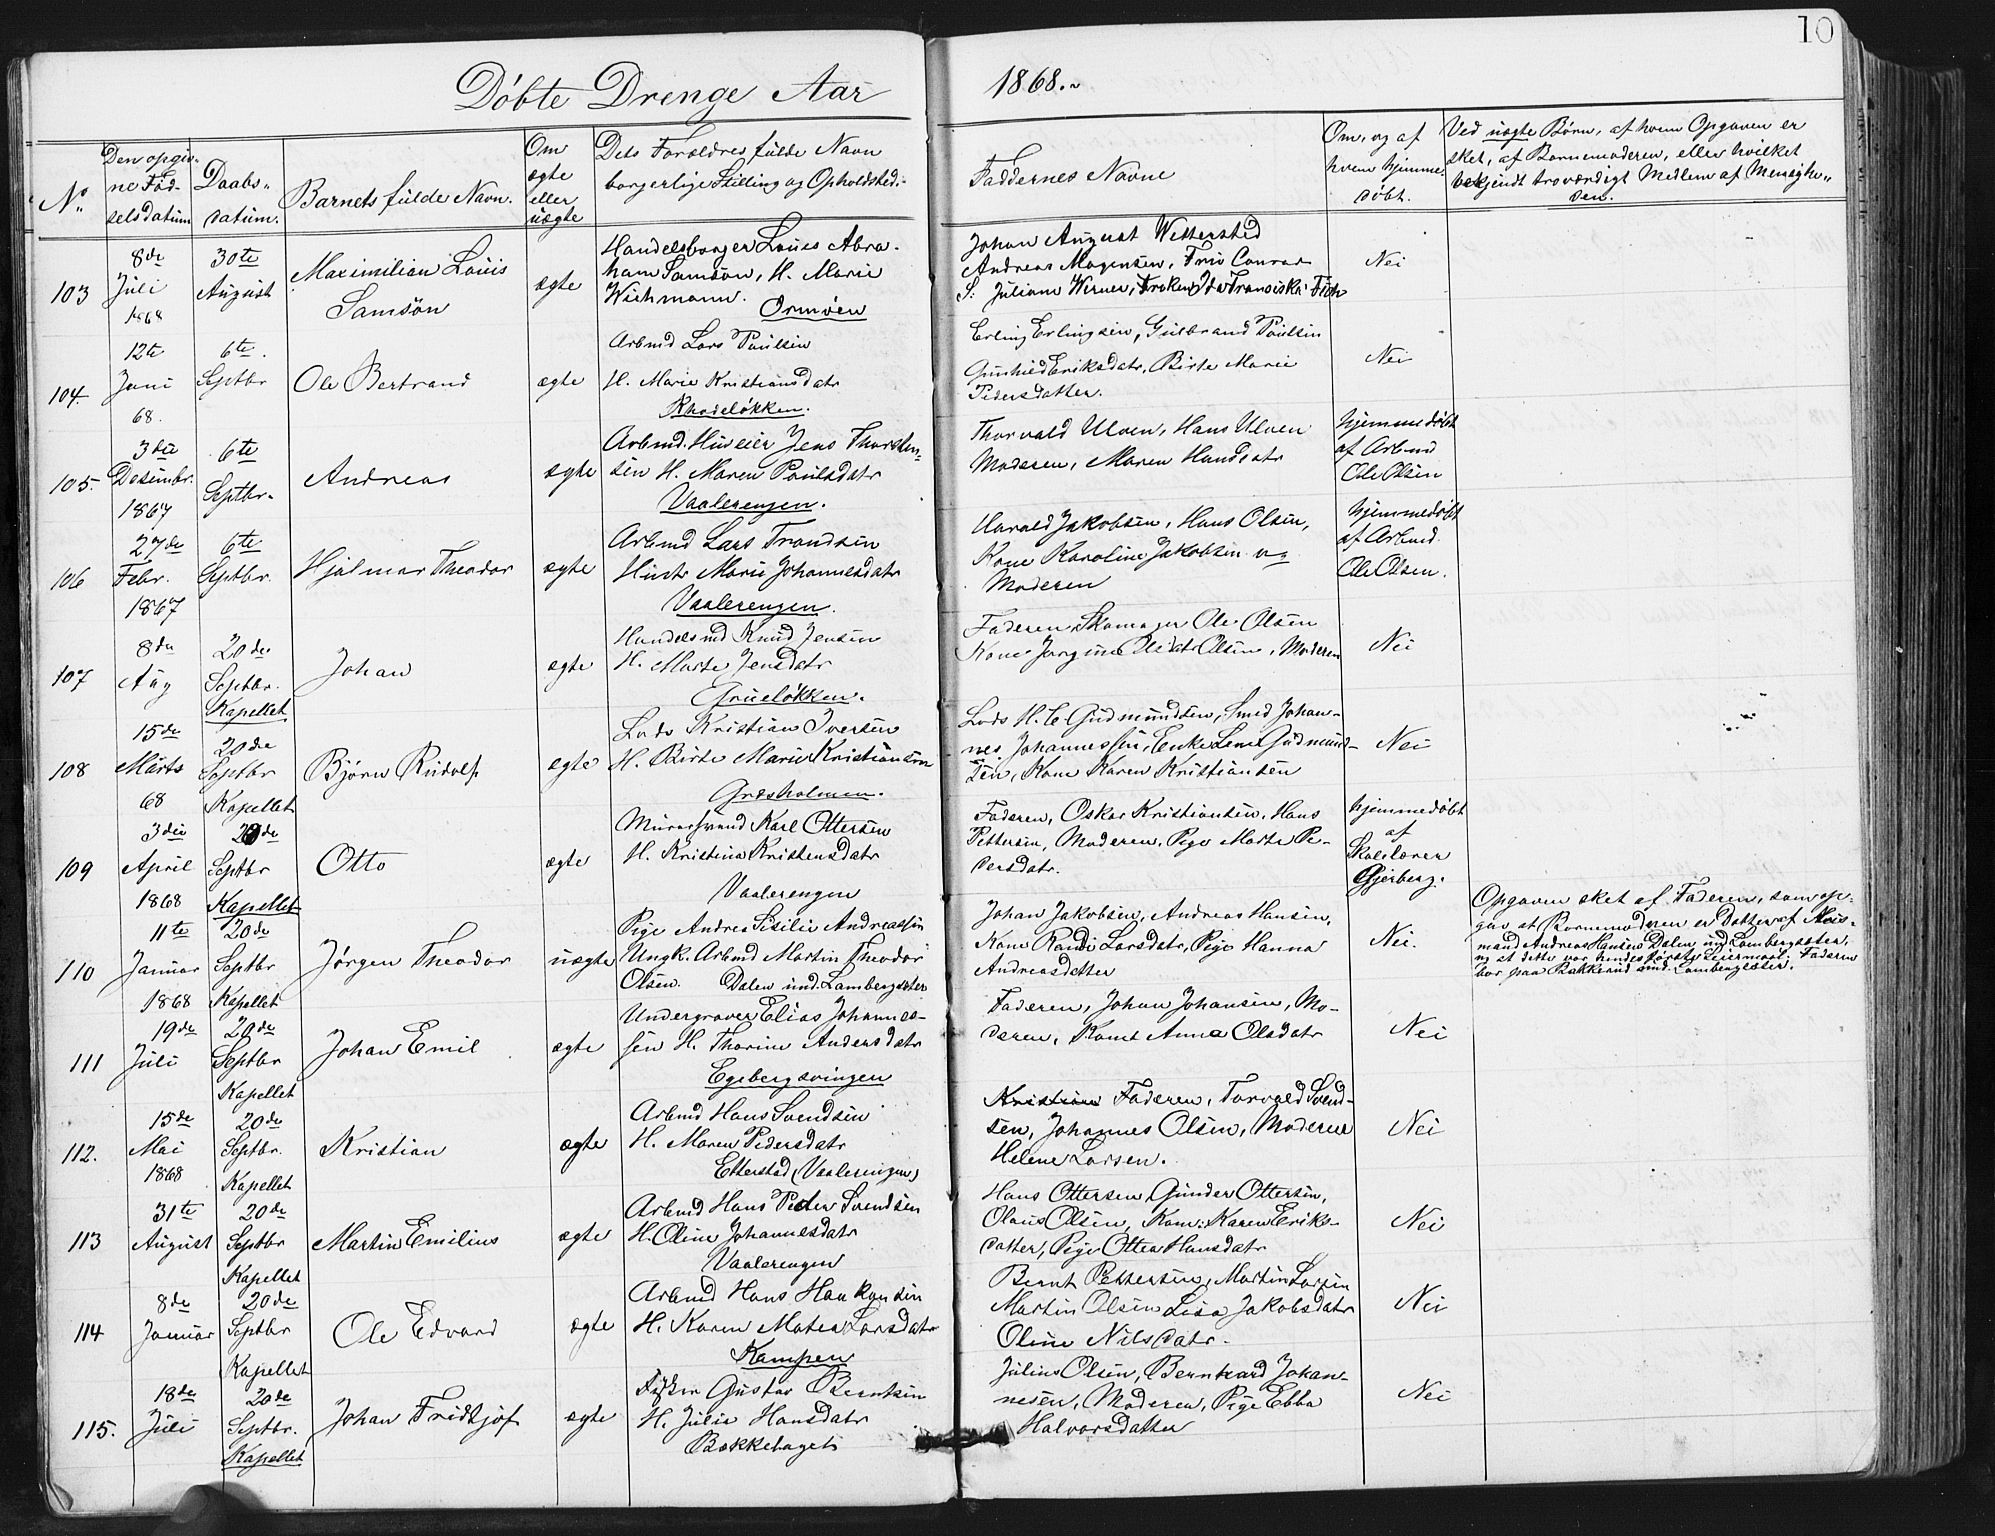 10
Döbte Drenge Aar 1868.
No
Den opgiv-
ne Fød-
selsdatum
Daabs-
datum.
Barnets fulde Navn.
Om
ægte
eller
uægte
Dets Forældres fulde Navn
borgerlige Stilling og Opholdsted:
Faddernes Navne
Om, og af
hvem hjemme-
døbt.
Ved uægte Børn, af hvem Opgaven er
sket, af Barnemoderen, eller hvilket
bekjendt troværdigt Medlem af Menighe-
den.
103
8de
Juli
1868
30te
August
Maximilian Louis
Samsøn
ægte
Handelsborger Louis Abra-
ham Samsøn, H. Marie
Wichmann.
Ormøen
Johan August Wetterstad
Andreas Mogensen, Conrad
S: Juliane Werner, Frøken Ida Franciska
Nei
104.
12te
Juni
68.
6te
Septbr
Ole Bertrand
ægte
Arbmd Lars Poulsen
H. Marie Kristiansdatr
Rhodeløkken.
Erling Erlingsen, Gulbrand Poulsen
Gunhild Eriksdatr, Birte Marie
Pedersdatter.
Nei
105.
3die
Desembr.
1867
6te
Septbr.
Andreas
ægte
Arbmd. Huseier Jens Thorsten-
sen H. Maren Poulsdatr
Vaalerengen.
Thorvald Ulven, Hans Ulven
Moderen, Maren Hansdatr
hjemmedøbt
af Arbmd
Ole Olsen
106
27de
Febr.
1867
6te
Septbr.
Hjalmar Theodor
ægte
Arbmd Lars Trondsen
Hustr Marie Johannesdatr
Vaalerengen.
Harald Jakobsen, Hans Olsen,
Kone Karoline Jakobsen og
Moderen
hjemmedøbt
af Arbmd.
Ole Olsen.
107
8de
Aug
20de
Septbr.
Kapellet
Johan
ægte
Handelsmd Knud Jensen
H. Marte Jensdatr
Grüneløkken.
Faderen, Skomager Ole Olsen
Kone Jørgine Olsen, Moderen
Nei
108
15de
Marts
68
20de
Septbr
Kapellet
Bjørn Rudolf
ægte
Lods Kristian Iversen
H. Birte Marie Kristiansen
Græsholmen.
Lods H. C. Gudmundsen, Smed Johan-
nes Johannessen, Enke Lene Gudmund-
sen, Kone Karen Kristiansen
Nei
109
3die
April
1868
20de
Septbr
Kapellet
Otto
ægte
Murersvend Karl Ottersen
H. Kristina Kristensdatr
Vaalerengen
Faderen, Oskar Kristiansen, Hans
Pettersen, Moderen, Pige Marte Pe-
dersdatr.
hjemmedøbt
af
Skolelærer
Gjerberg.
110
11te
Januar
1868
20de
Septbr
Kapellet
Jørgen Theodor
uægte
Pige Andrea Sisilie Andreassen
Ungk. Arbmd Martin Theodor
Olsen. Dalen und. Lambergseter
Johan Jakobsen, Andreas Hansen,
Kone Randi Larsdatr, Pige Hanna
Andreasdatter
Nei.
Opgaven sket af Faderen, som op-
gav at Barnemoderen er Datter af Hus-
mand Andreas Hansen Dalen und Lambergseter,
og at dette var hendes første Leiermaal. Faderen
bor paa Bakkerud und. Lambergseter.
111
19de
Juli
20de
Septbr
Kapellet
Johan Emil
ægte
Undergraver Elias Johannes-
sen H. Thorine Andersdatr
Egebergsvingen
Faderen, Johan Johansen, Mo-
deren, Kone Anna Olsdatr
Nei
112.
15de
Mai
1868
20de
Septbr.
Kapellet
Kristian
ægte
Arbmd Hans Svendsen
H. Maren Pedersdatr
Etterstad (Vaalerengen)
Kristian Faderen, Torvald Svend-
sen, Johannes Olsen, Moderen
Helene Larsen.
Nei
113
31te
August
20de
Septbr
Kapellet
Martin Emilius
ægte
Arbmd Hans Peder Svendsen
H. Oline Johannesdatr
Vaalerengen
Hans Ottersen, Gunder Ottersen,
Olaus Olsen, Kone: Karen Eriks-
datter, Pige Ottea Hansdatr
Nei
114
8de
Januar
20de
Septbr
Kapellet
Ole Edvard
ægte
Arbmd Hans Haakonsen
H. Karen Matea Larsdatr
Kampen
Bernt Pettersen, Martin Larsen
Martin Olsen Lisa Jakobsdatr
Oline Nilsdatr.
Nei
115.
18de
Juli
20de
Septbr.
Kapellet
Johan Fridtjof
ægte
Fisker Gustav Berntsen
H. Julie Hansdatr
Bækkehaget
Julius Olsen, Bernhard Johan-
nesen, Moderen, Pige Ebba
Halvorsdatter
Nei